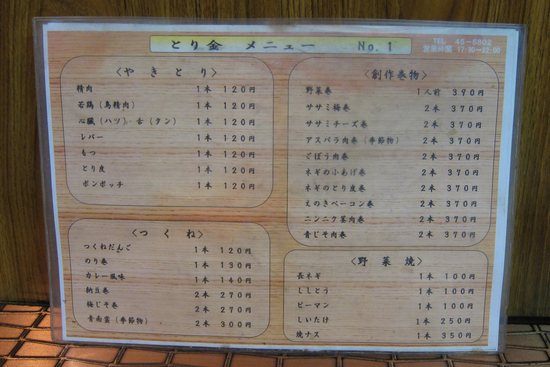 とり金 メニュー No.1
TEL 45-6802
営業時間 17:30〜22:00
〈やきとり〉
精肉 1本 120円
若鶏(鳥精肉) 1本 120円
心臓(ハツ)・舌(タン) 1本 120円
レバー 1本 120円
もつ 1本 120円
とり皮 1本 120円
ボンボッチ 1本 120円
〈つくね〉
つくねだんご 1本 120円
のり巻 1本 130円
カレー風味 1本 140円
納豆巻 2本 270円
梅じそ巻 2本 270円
青南蛮(季節物) 2本 300円
〈創作巻物〉
野菜巻 1人前 390円
ササミ梅巻 2本 370円
ササミチーズ巻 2本 370円
アスパラ肉巻(季節物) 2本 370円
ごぼう肉巻 2本 370円
ネギの小あげ巻 2本 370円
ネギのとり皮巻 2本 370円
えのきベーコン巻 2本 370円
ニンニク茎肉巻 2本 370円
青じそ肉巻 2本 370円
〈野菜焼〉
長ネギ 1本 100円
ししとう 1本 100円
ピーマン 1本 100円
しいたけ 1本 250円
焼ナス 1本 350円